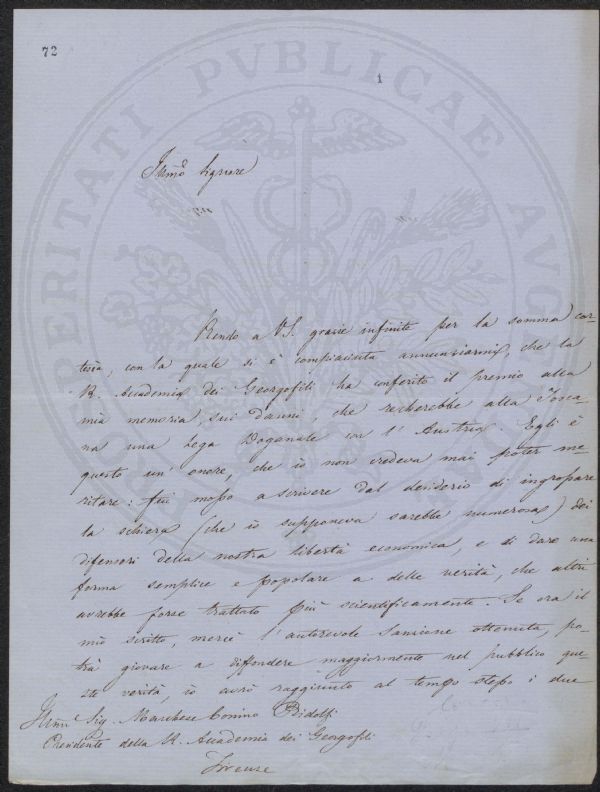 72
1
PROSPERITATI PVBLICAE AVGENDAE
Illmo Signore
Rendo a VS. grazie infinite per la somma cor-
tesia, con la quale si è compiaciuta annunziarmi, che la
R. Accademia dei Georgofili ha conferito il premio alla
mia memoria, sui danni, che recherebbe alla Tosca
na una Lega Doganale con l'Austria. Egli è
questo un'onore, che io non credeva mai poter me-
ritare: fui mosso a scrivere dal desiderio di ingrossare
la schiera (che io supponeva sarebbe numerosa) dei
difensori della nostra libertà economica, e di dare una
forma semplice e popolare a delle verità, che altri
avrebbe forse trattato più scientificamente. Se ora il
mio scritto, mercè l'autorevole sanzione ottenuta, po-
trà giovare a diffondere maggiormente nel pubblico que-
ste verità, io avrò raggiunto al tempo stesso i due
Illmo Sig. Marchese Cosimo Ridolfi
Presidente della R. Accademia dei Georgofili
Firenze